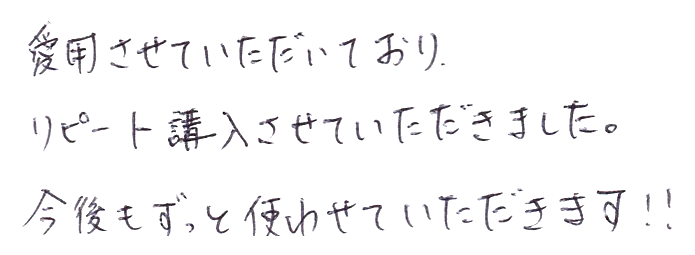 愛用させていただいており、
リピート購入させていただきました。
今後もずっと使わせていただきます!!